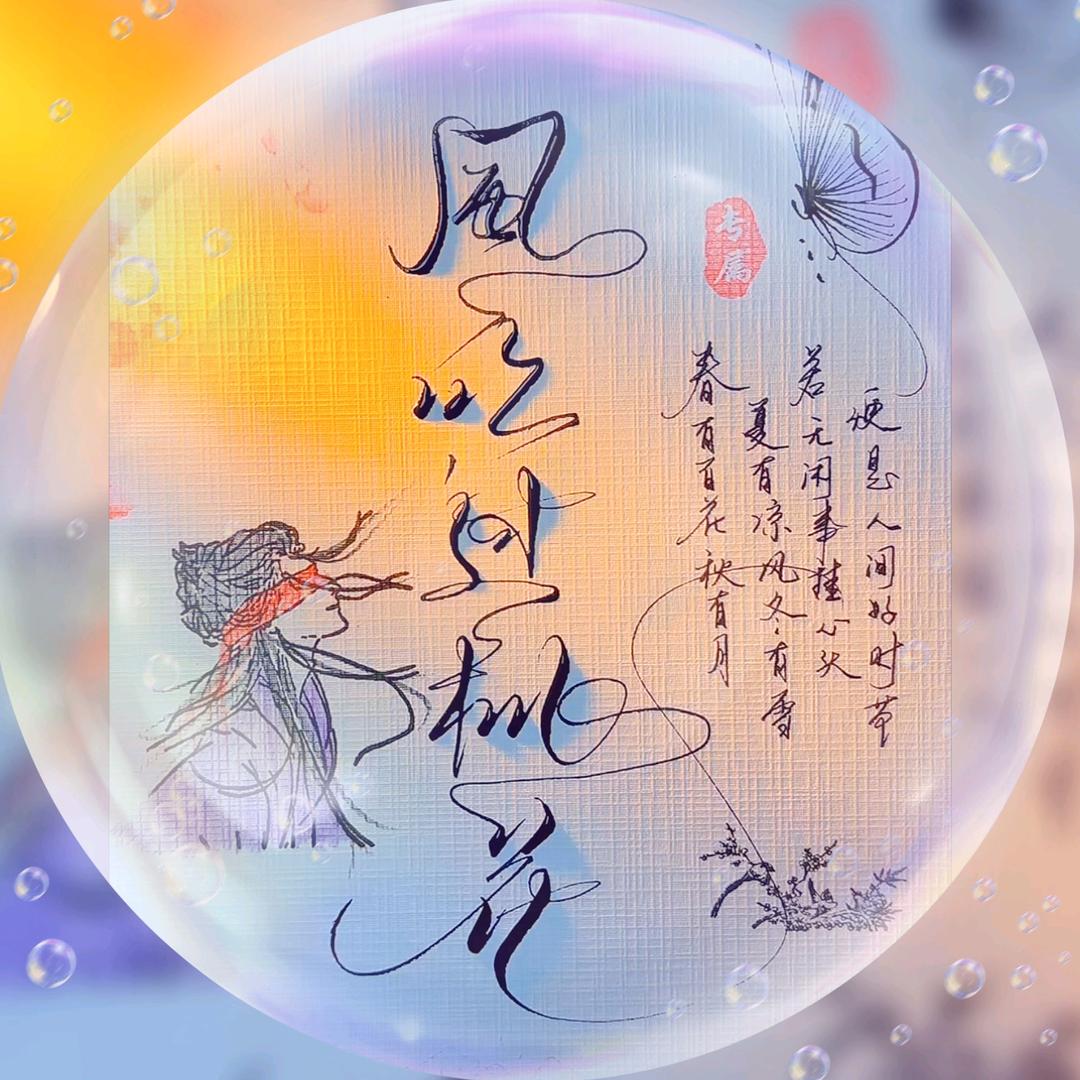 風
桃
花
专属
春有百花秋有月
夏有凉风冬有雪
若无闲事挂心头
便是人间好时节